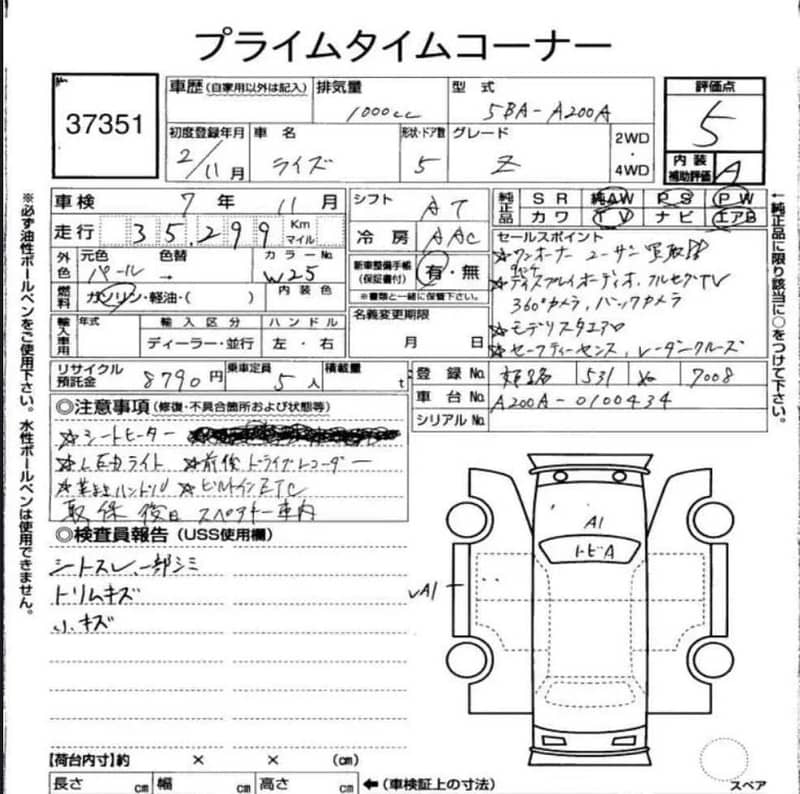 プライムタイムコーナー
37351
車歴(自家用以外は記入) 排気量 1000cc 型式 5BA-A200A
評価点 5
初度登録年月 2/11月 車名 ライズ 形状・ドア数 5 グレード Z 2WD・4WD
内装補助評価 A
車検 7年 11月
シフト AT
純正品 SR 純AW PS PW
カワ TV ナビ エアB
走行 35,299 Km マイル
冷房 AAC
外色 元色 パール 色替 → カラーNo. W25
新車整備手帳(保証書付) 有・無
※書類と一緒に保管下さい。
燃料 ガソリン・軽油・( ) 内装色
名義変更期限 月 日
セールスポイント
☆ワンオーナー ユーザー買取
☆ディスプレイオーディオ、フルセグTV
360°カメラ、バックカメラ
☆モデリスタエアロ
☆セーフティーセンス、レーダークルーズ
輸入車用 年式 輸入区分 ハンドル
ディーラー・並行 左・右
リサイクル預託金 8790円 乗車定員 5人 積載量 t
登録No. 531 7008
車台No. A200A-0100434
シリアルNo.
◎注意事項(修復・不具合箇所および状態等)
☆シートヒーター
☆LEDライト ☆前後ドライブレコーダー
☆革巻ハンドル ☆ビルトインETC
取保後日 スペアキー車内
◎検査員報告(USS使用欄)
シートスレ、一部シミ
トリムキズ
小キズ
A1
トビA
A1
【荷台内寸】約 × × (cm)
長さ cm 幅 cm 高さ cm ←(車検証上の寸法)
スペア
※必ず油性ボールペンをご使用下さい。水性ボールペンは使用できません。
←純正品に限り該当に○をつけて下さい。